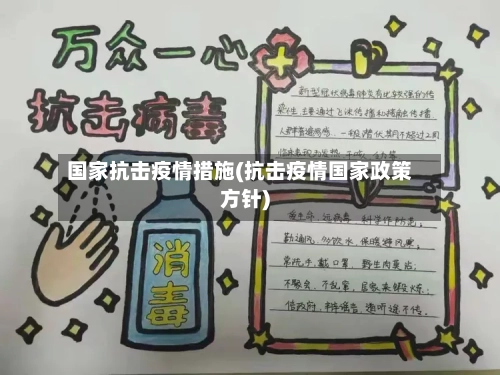 万众一心
抗击病毒
国家抗击疫情措施(抗击疫情国家政策
方针)
消毒
新型冠状病毒肺炎有比较强的传
染性,主要通过飞沫传播和接触传播
人群普遍易感,一般潜伏期不超过2周
重生命,远病毒,科学作防范。
勤通风,多饮水,保暖避风寒。
常洗手,戴口罩,野生肉莫沾;
不聚会,不乱窜,
信政府,辨谣言,道听途不传。